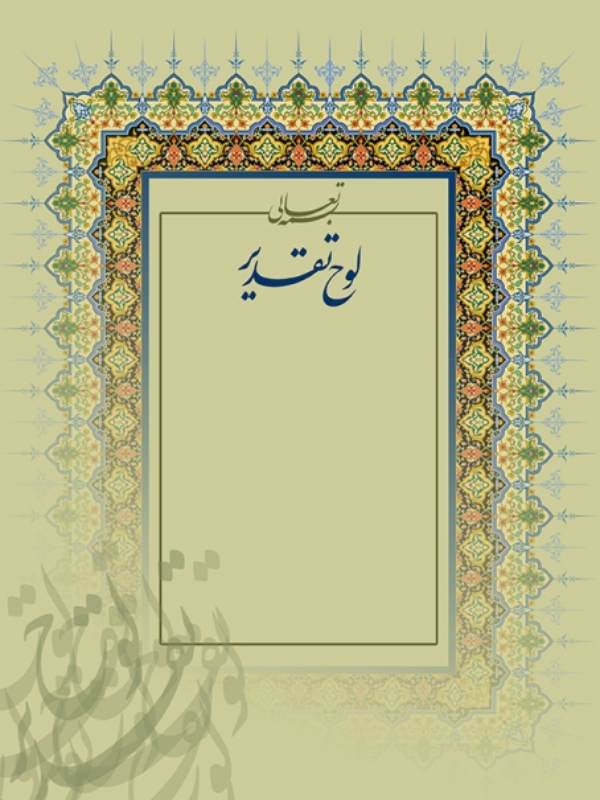 بسمه تعالی
لوح تقدیر